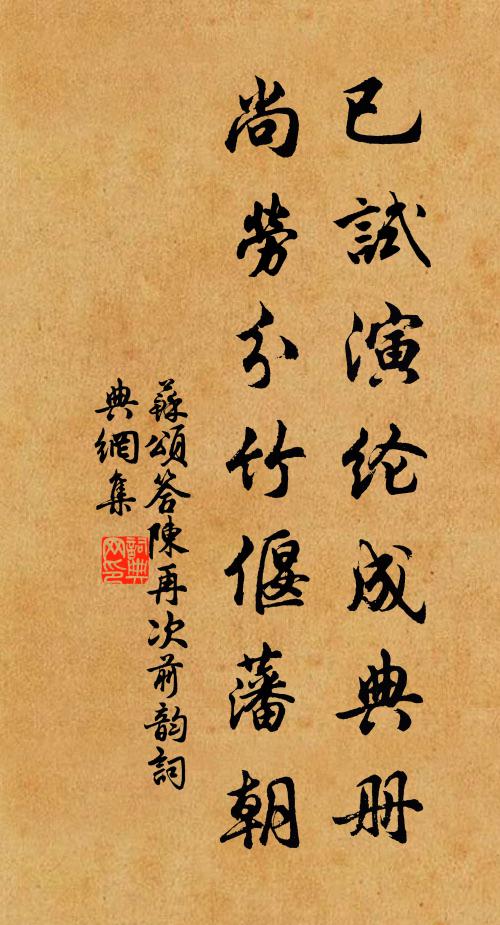 已試演纶成典册
尚勞分竹偃藩朝
蘇頌答陳再次前韵詞
典網集
詞典網印